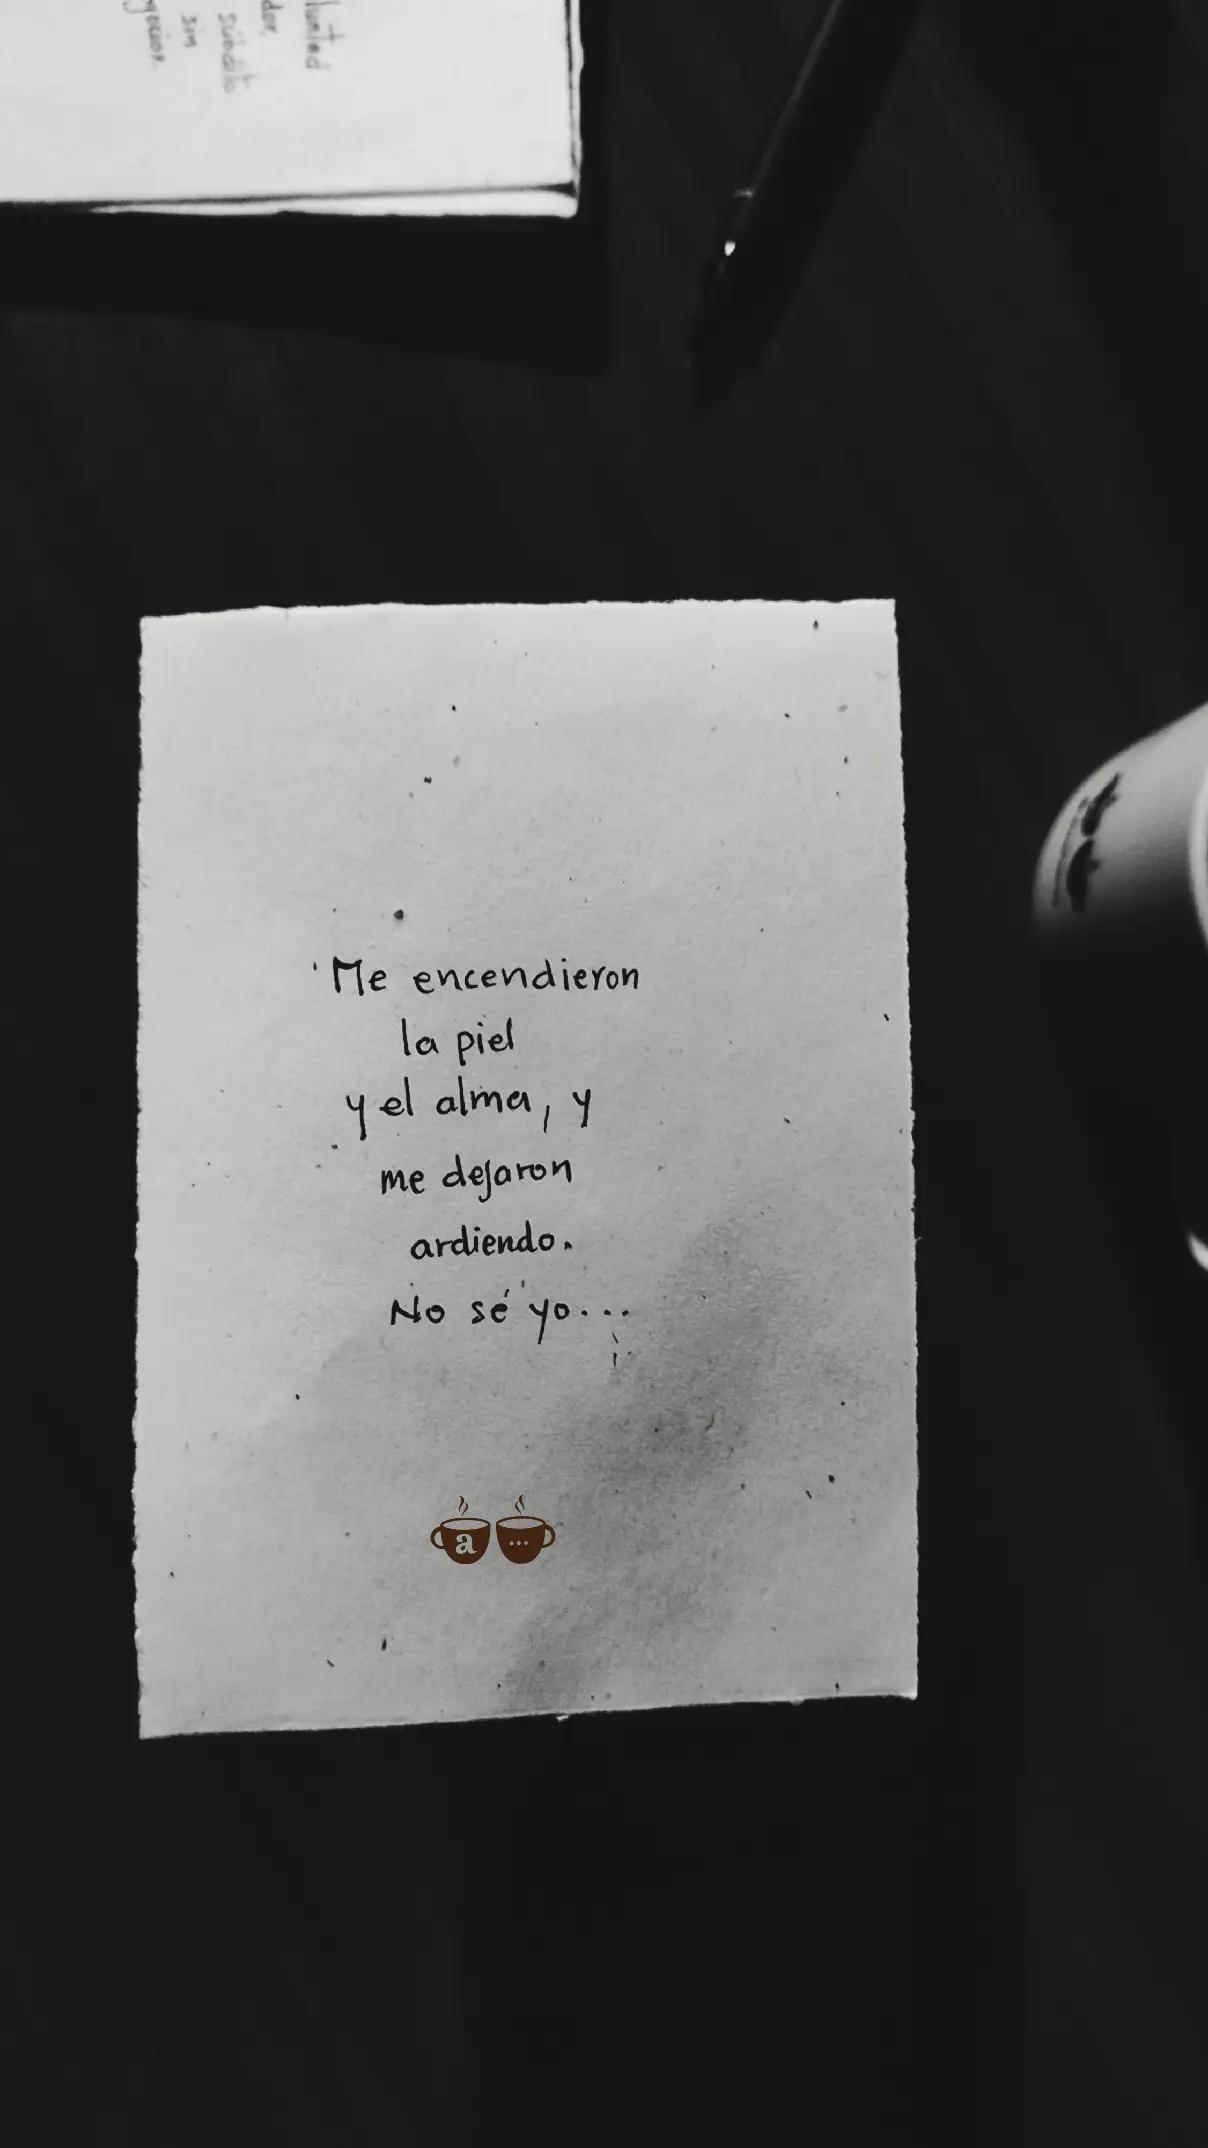 Me encendieron
la piel
y el alma, y
me dejaron
ardiendo.
No sé yo...
a ...
sin